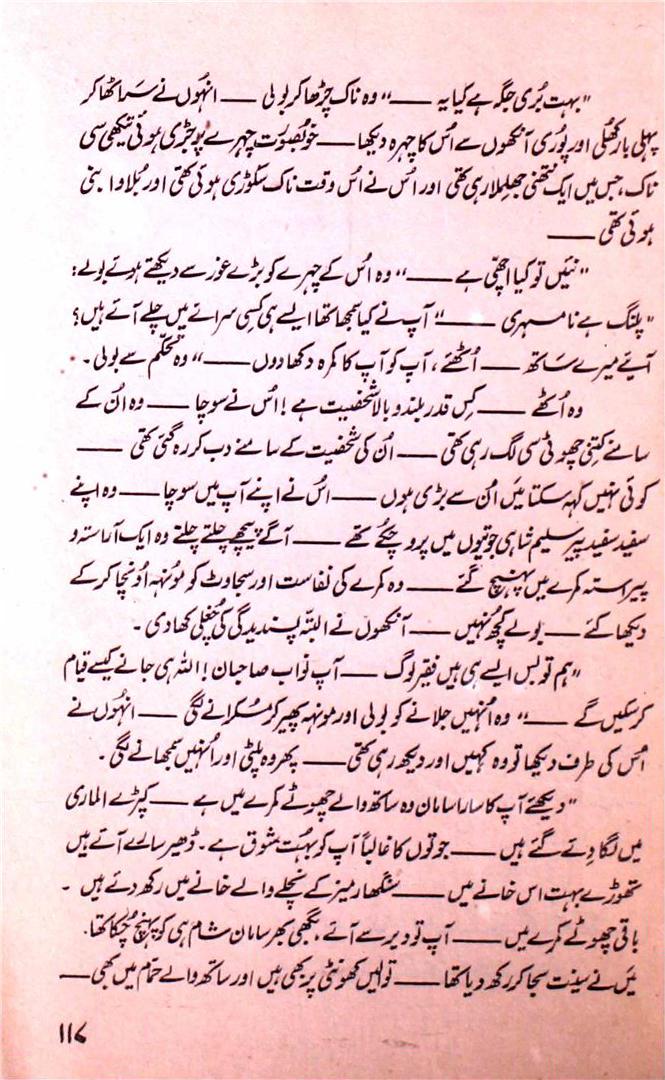 "بہت بُری جگہ ہے کیا یہ ــــ" وہ ناک چڑھا کر بولی ــــ انہوں نے سَر اٹھا کر
پہلی بار کھُلی اور پوُری آنکھوں سے اُس کا چہرہ دیکھا ــــ خوُبصوُرت چہرے پر جڑی ہوئی تیکھی سی
ناک، جس میں ایک نتھنی جھلملا رہی تھی اور اُس نے اُس وقت ناک سکوڑی ہوئی تھی اور بُلاوا بنی
ہوئی تھی ــــ
"نئیں تو کیا اچھی ہے ــــ" وہ اُس کے چہرے کو بڑے غور سے دیکھتے ہوئے بولے؛
"پلنگ ہے نا مسہری ــــ" آپ نے کیا سمجھا تھا ایسے ہی کسی سرائے میں چلے آئے ہیں؟
آیئے میرے سَاتھ ــــ اُٹھئے، آپ کو آپ کا کمرہ دکھا دوں ــــ" وہ تحکّم سے بولی۔
وہ اُٹھے ــــ کِس قدر بلند و بالا شخصیت ہے! اُس نے سوچا ــــ وہ اُن کے
سامنے کتنی چھوٹی سی لگ رہی تھی ــــ اُن کی شخصیت کے سامنے دب کر رہ گئی تھی ــــ
کوئی نہیں کہہ سکتا میَں اُن سے بڑی ہوں ــــ اُس نے اپنے آپ میں سوچا ــــ وہ اپنے
سفید سفید پیر سلیم شاہی جوتیوں میں پرو چکُے تھے ــــ آگے پیچھے چلتے چلتے وہ ایک آراستہ و
پیراستہ کمرے میں پہنچ گئے ــــ وہ کمرے کی نفاست اور سجاوٹ کو موُنہہ اوُنچا کر کے
دیکھا کئے ــــ بولے کچُھ نہیں ــــ آنکھوں نے البتّہ پسندیدگی کی چُغلی کھا دی۔
"ہم تو بس ایسے ہی ہیں فقیر لوگ ــــ آپ نواب صاحبان! اللہ ہی جانے کیسے قیام
کر سکیں گے ــــ" وہ اُنہیں جلانے کو بولی اور موُنہہ پھیر کر مُسکرانے لگی ــــ انہُوں نے
اُس کی طرف دیکھا تو وہ کہیں اور دیکھ رہی تھی ــــ پھر وہ پلٹی اور اُنہیں سمجھانے لگی۔
"دیکھئے آپ کا سارا سامان وہ ساتھ والے چھوٹے کمرے میں ہے ــــ کپڑے الماری
میں لگا دئے گئے ہیں ــــ جوتوں کا غالباً آپ کو بہُت شوق ہے۔ ڈھیر سارے آئے ہیں
تھوڑے بہت اس خانے میں ــــ سنگھار میز کے نچلے والے خانے میں رکھ دئے ہیں۔
باقی چھوٹے کمرے میں ــــ آپ تو دیر سے آئے، بگھی بھر سامان شام ہی کو پہنچ چُکا تھا۔
میَں نے سینت سجا کر رکھ دیا تھا ــــ تولیں کھونٹی پر بھی ہیں اور ساتھ والے حمّام میں بھی ــــ
۱۱۷